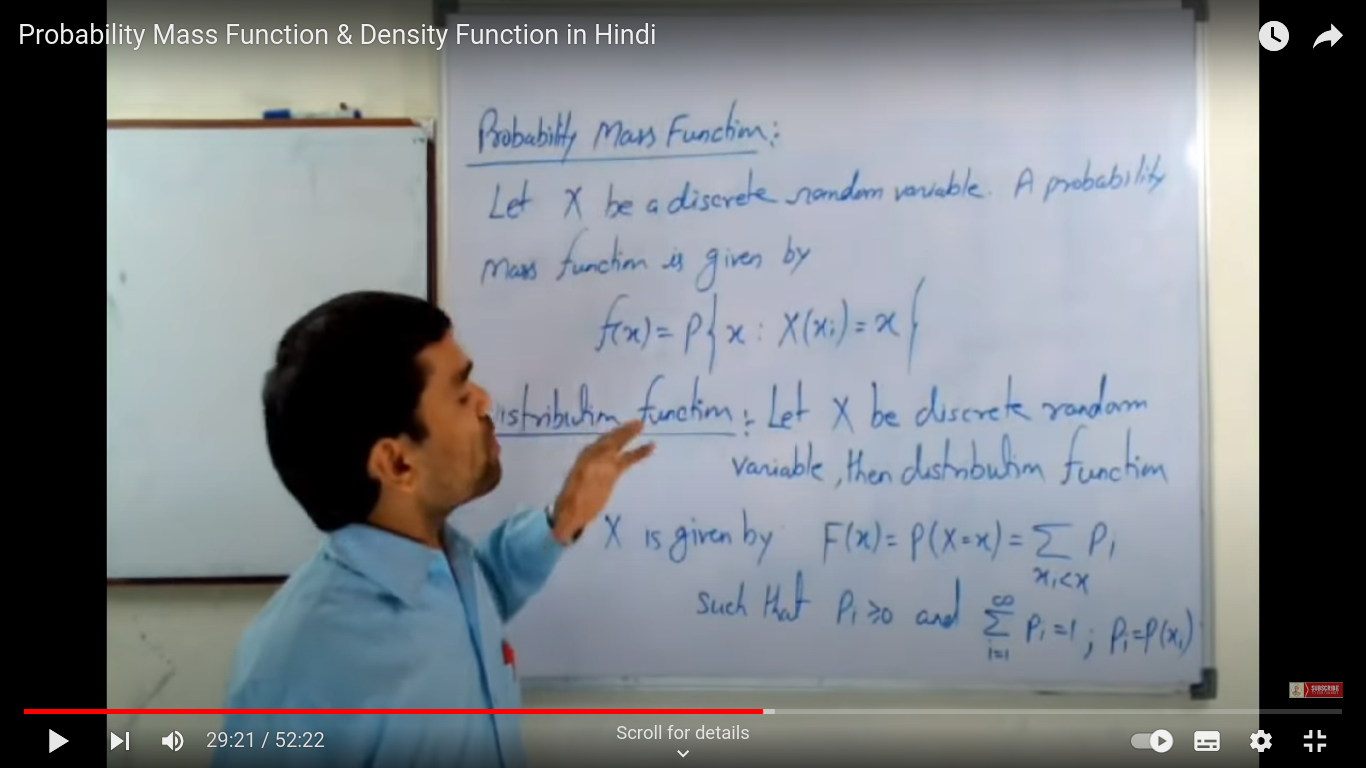 Probability Mass Function & Density Function in Hindi
Probability Mass Function:
Let X be a discrete random variable. A probability
Mass function is given by
f(x) = P{ x : X(xi) = x }
istribution function :- Let X be discrete random
variable, then distribution function
X is given by F(x) = P(X=x) = ∑ Pi
xi<x
such that Pi ≥0 and ∑ Pi =1 ; Pi=P(xi)
∞
i=1
SUBSCRIBE
29:21 / 52:22
Scroll for details